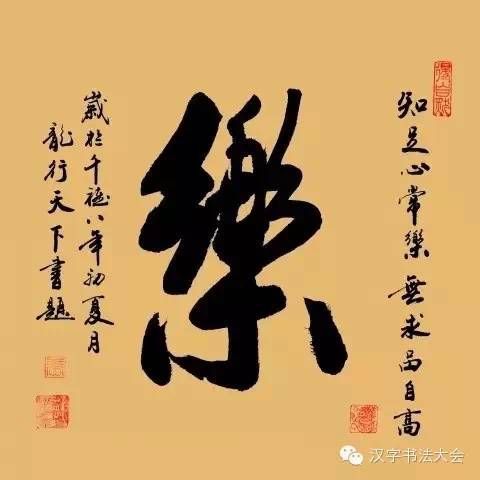 知足心常樂 無求品自高
樂
歲於千禧八年初夏月
龍行天下書題
汉字书法大会